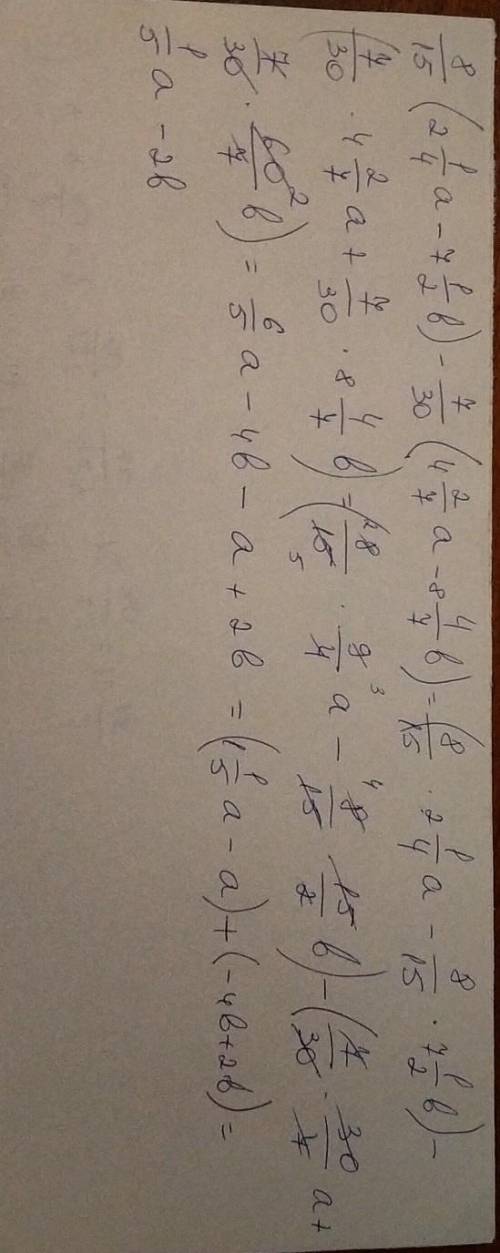 8/15 (2 1/4 a - 7 1/2 b) - 7/30 (4 2/7 a - 8 4/7 b) = (8/15 · 2 1/4 a - 8/15 · 7 1/2 b) -
(7/30 · 4 2/7 a + 7/30 · 8 4/7 b) = (2 8/15 5 · 9/4 3 a - 4 8/15 15/2 b) - (7/30 · 30/7 a +
7/30 · 60 2/7 b) = 6/5 a - 4b - a + 2b = (1 1/5 a - a) + (-4b + 2b) =
1/5 a - 2b